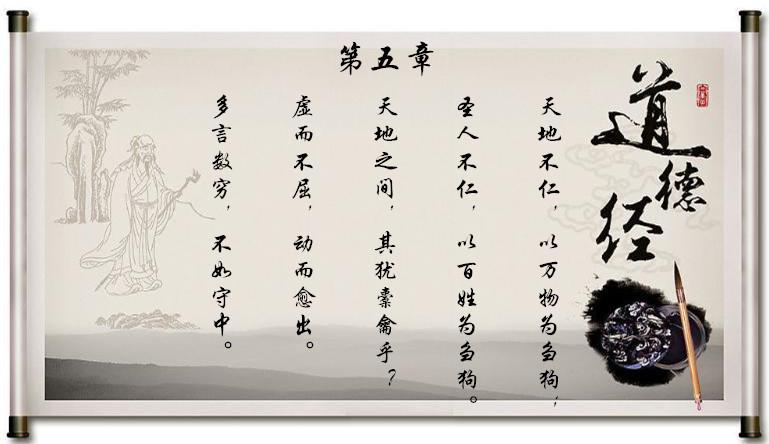 道德经
第五章
天地不仁，以万物为刍狗，
圣人不仁，以百姓为刍狗。
天地之间，其犹橐龠乎？
虚而不屈，动而愈出。
多言数穷，不如守中。